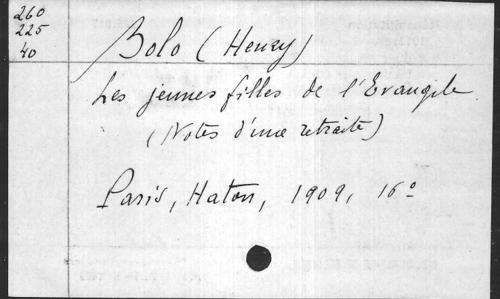 260
225
40
Bolo (Henry)
Les jeunes filles de l'Evangile
(Notes d'une retraite)
Paris, Haton, 1909, 16°